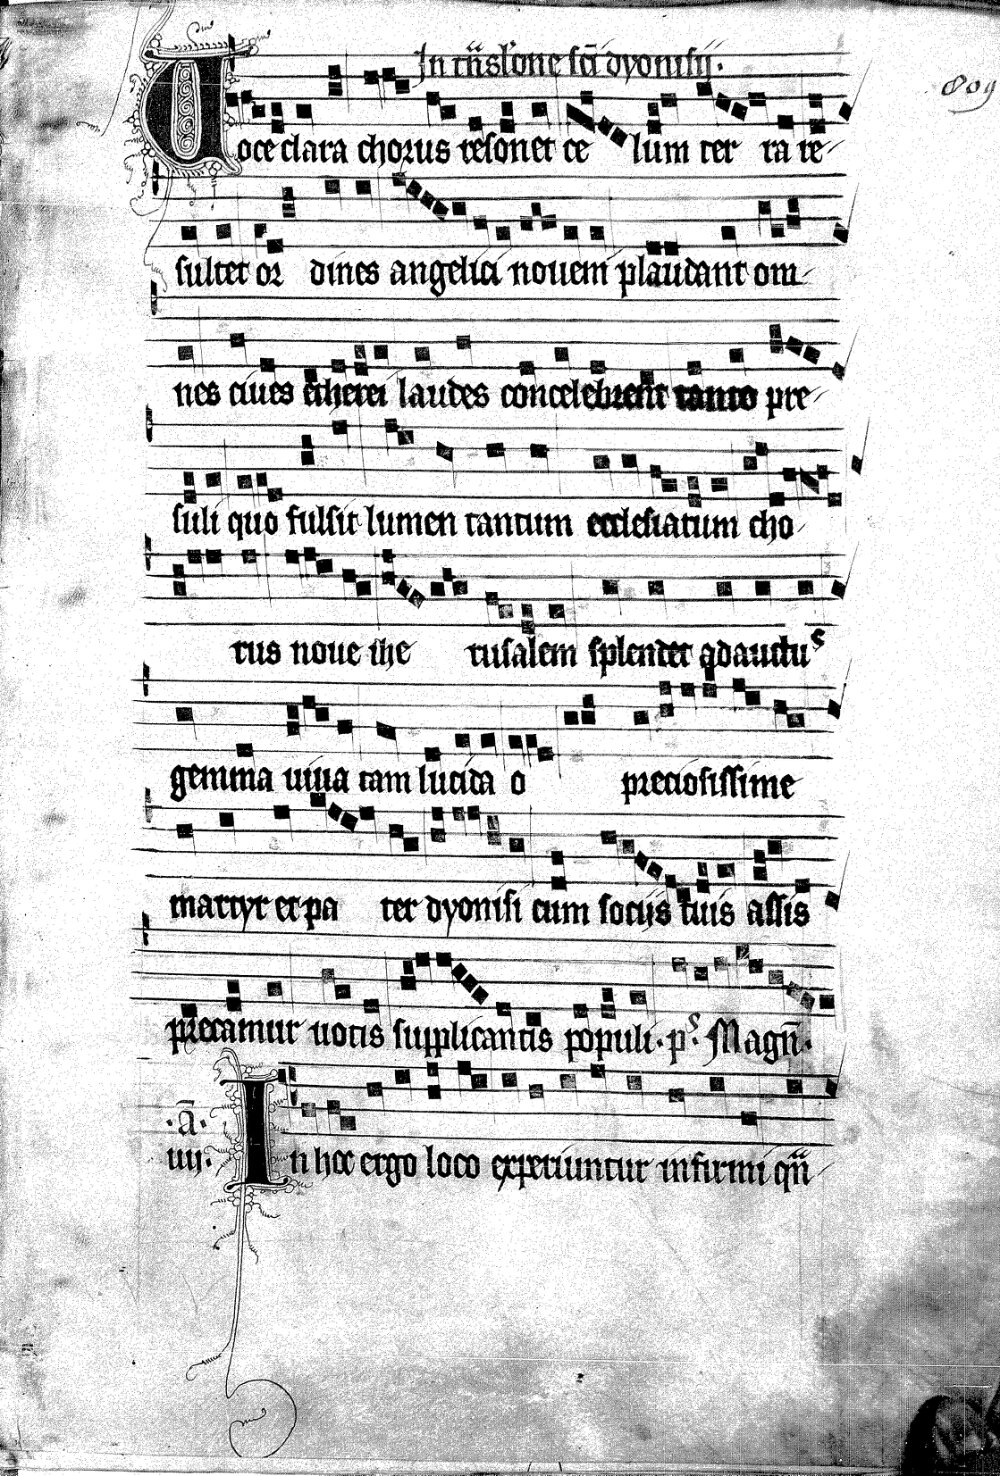 In trãsl'one sc̃i dyonisij.
809
Uoce clara chorus resonet ce lum ter ra re
sultet or dines angelici nouem plaudant om
nes ciues etherei laudes concelebrent tanto pre
suli quo fulsit lumen tantum ecclesiatum cho
rus noue ihe rusalem splendet qdauitus
gemma uiua tam lucida o preciosissime
martyr et pa ter dyonisi cum socijs tuis assis
precamur uotis supplicantis populi. ps. Magn̄.
.ā.
iiij.
In hoc ergo loco experiuntur infirmi qñ